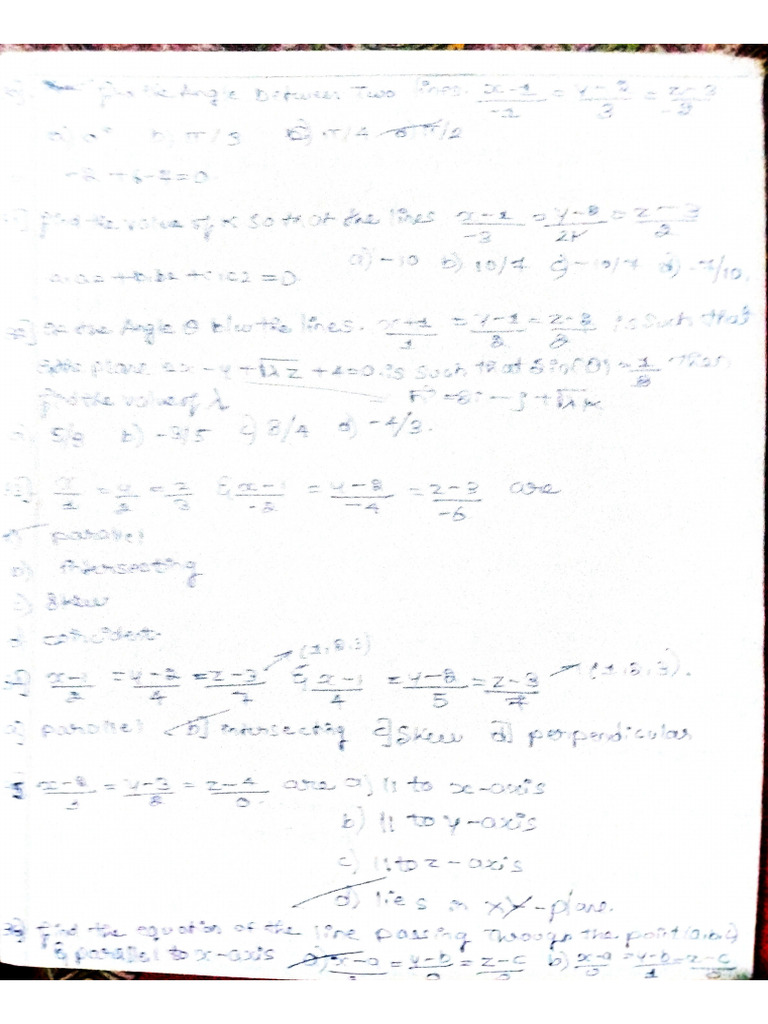 Angle Between Two lines. x-1/-2 = y-2/3 = z-3/-2
a) 0° b) π/3 c) π/4 d) π/2
-2+6-4=0
find the value of K so that the lines x-1/-3 = y-2/2K = z-3/2
a) -10 b) 10/7 c) -10/7 d) -7/10.
a1a2 + b1b2 + c1c2 = 0
the Angle θ b/w the lines. x+1/1 = y-1/2 = z-2/2 is such that
the plane 2x-y+√λz+4=0 is such that Sin(θ)=1/3 then
find the value of λ
5/3 b) -3/5 c) 3/4 d) -4/3.
x/1 = y/2 = z/3 & x-1/-2 = y-2/-4 = z-3/-6 are
parallel
b) intersecting
c) Skew
d) coincident
→(1,2,3)
x-1/2 = y-2/4 = z-3/7 & x-1/4 = y-2/5 = z-3/7 →(1,2,3).
a] parallel b] intersecting c] Skew d] perpendicular
x-2/1 = y-3/2 = z-4/0 are a) || to x-axis
b) || to y-axis
c) || to z-axis
d) lies in XY-plane.
find the equation of the line passing through the point (a,b,c)
& parallel to x-axis a) x-a/1 = y-b/0 = z-c/0 b) x-a/0 = y-b/1 = z-c/0